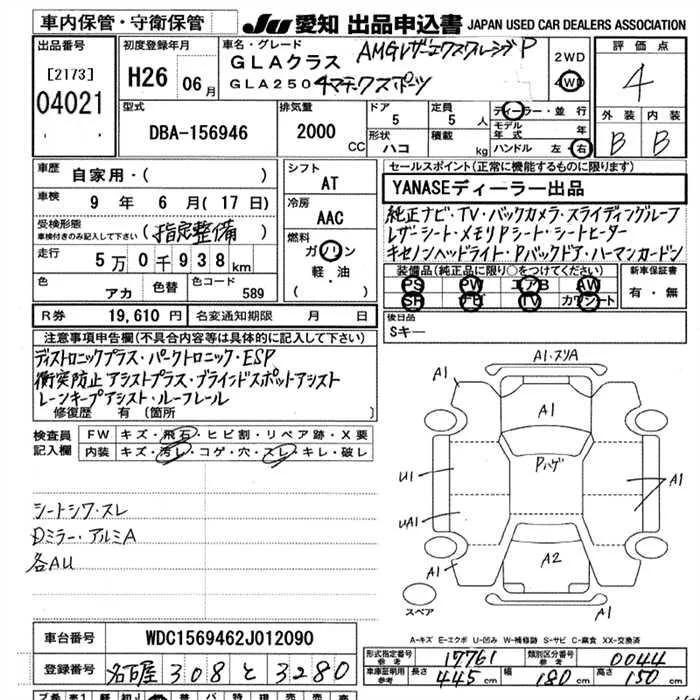 車内保管・守衛保管
JU 愛知 出品申込書 JAPAN USED CAR DEALERS ASSOCIATION
出品番号
[2173]
04021
初度登録年月
H26 06月
車名・グレード
GLAクラス AMGレザーエクスクルーシブP
GLA250 4マチックスポーツ
2WD
4WD
評価点
4
外装 内装
B B
型式
DBA-156946
排気量
2000 CC
ドア
5
定員
5 人
形状
ハコ
積載
kg
ディーラー・並行
モデル年式 年
ハンドル 左・右
車歴
自家用・( )
車検
9 年 6 月 (17 日)
受検形態
車検付きのみ記入して下さい (指定整備)
走行
5万0千938km
色
アカ
色替
色コード
589
シフト
AT
冷房
AAC
燃料
ガソリン
軽・油
( )
セールスポイント(正常に機能するものに限り)
YANASEディーラー出品
純正ナビ・TV・バックカメラ・スライディングルーフ
レザーシート・メモリPシート・シートヒーター
キセノンヘッドライト・Pバックドア・ハーマンカードン
装備品(純正品に限り○をつけてください)
PS PW エアB AW
SR ナビ TV カワシート
新車保証書
有・無
R券 19,610 円
名変通知期限 月 日
後日品
Sキー
注意事項申告欄(不具合内容等は具体的に記入して下さい)
ディストロニックプラス・パークトロニック・ESP
衝突防止アシストプラス・ブラインドスポットアシスト
レーンキープアシスト・ルーフレール
修復歴 有 (箇所 )
検査員記入欄
FW キズ・飛石・ヒビ割・リペア跡・X要
内装 キズ・汚レ・コゲ・穴・スレ・キレ・破レ
シートシワ・スレ
Dミラー・アルミA
各AU
A1・スリA
A1
A1
A1
Pハゲ
U1
A1
UA1
A2
A1
A1
スペア
A-キズ E-エクボ U-凹み W-補修跡 S-サビ C-腐食 XX-交換済
車台番号 WDC1569462J012090
登録番号 名古屋 308 と 3280
形式指定番号 参考 17761
類別区分番号 参考 0044
車庫証明用 参考 長さ 445cm 幅 180cm 高さ 150cm